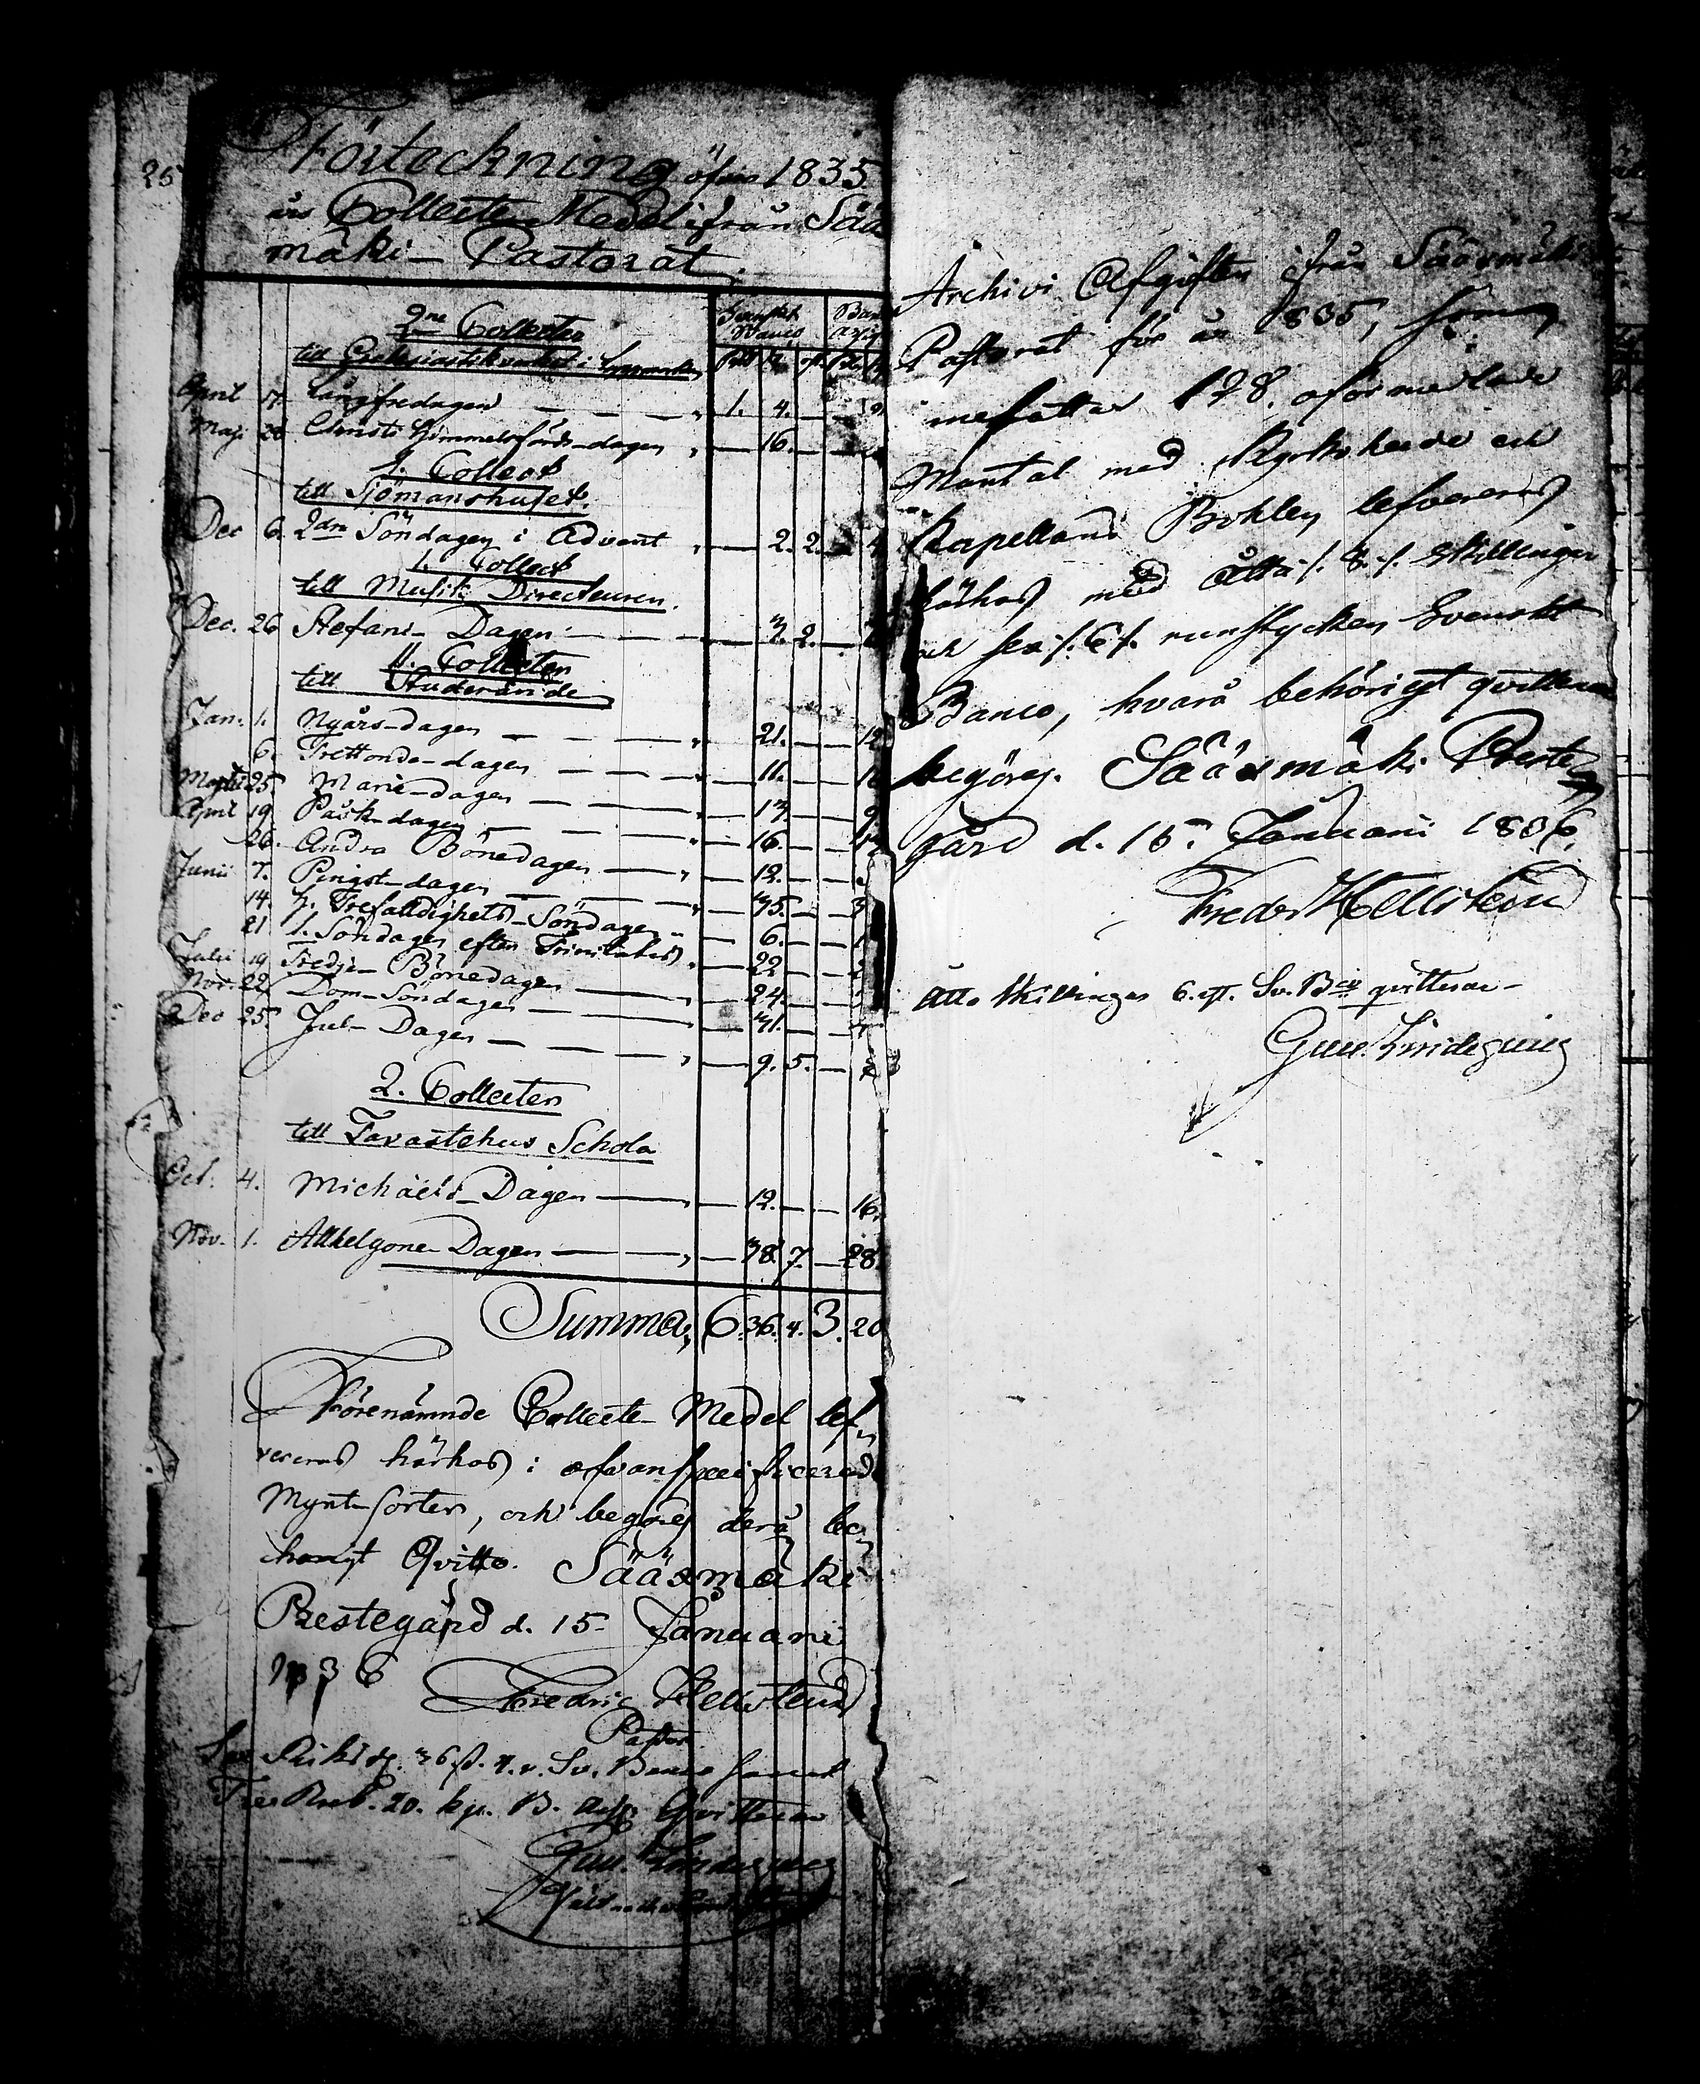 Förteckning öfver 1835
års Collecte Medel ifrån Sää
mäki Pastorat.
2ne Collecter
till Ecclesiastikverket i
Svenskt Banco
April 17. Långfredagen 1. 4.
Maji 28 Christi Himmelsfärds-dagen 16.
1. Collect
till Sjömanshuset.
Dec 6. 2dra Söndagen i Advent 2. 2. 4
1. Collect
till Musik Directeuren.
Dec. 26 Stefani Dagen 3. 2.
11. Collecter
till Studerande
Jan. 1. Nyårs-dagen 21. 12
6. Trettonde-dagen 11.
Martii 25. Mariæ-dagen 13. 9
April 19 Påsk-dagen 16.
26. Andra Bönedagen 12.
Junii 7. Pingst-dagen 35.
14. H. Trefaldighets-Söndagen 6.
21 1. Söndagen efter Trinitatis 22
Julii 19 Tredje Bönedagen 24.
Nov. 22 Dom-Söndagen 31.
Dec 25. Jul-Dagen 9. 5.
2. Collecter
till Tavastehus Schola
Oct. 4. Michaëls-Dagen 12. 16.
Nov. 1. Allhelgone-Dagen 38. 7. 28.
Summa, 6. 36. 4. 3. 20
Förenämnde Collecte-Medel lef
vereras härhos i ofvanspecificerade
Mynt-sorter, och begäres derå be
hörigt Qvitto. Sääxmäki
Prestegård d. 15 Januari
1836
Fredric Hellstend
Pastor
Sex Riksd. 36 sk. 4. r. Sv. Banco samt
Tre Rub. 20. kp. B. Ass. Qvitteras
Gust. Lindeqvist
Archivi Afgiften ifrån Sääxmäki
Pastorat för år 1835, som
innefattar 128. oförmedlade
Mantal med Kyrkoherde och
Kapellans Bohlen lefvereras
härhos med Åtta /. 8. /. Skillingar
och sex /. 6 /. runstycken Svenskt
Banco, hvarå behörigt qvitteras
begäres. Sääxmäki Preste
gård d. 15. Januari 1836.
Fredr Hellstend
Åtta Skillingar 6. rst. Sv. Bco qvitteras
Gust. Lindeqvist